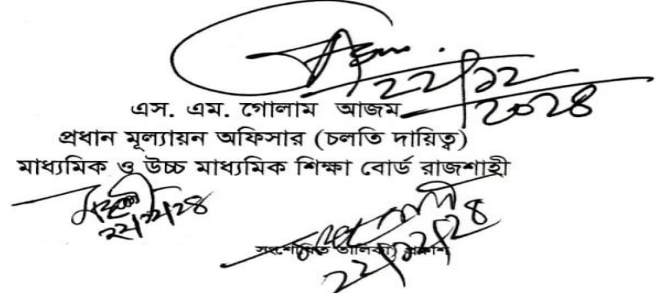 ২২/১২
২০২৪
এস. এম. গোলাম আজম
প্রধান মূল্যায়ন অফিসার (চলতি দায়িত্ব)
মাধ্যমিক ও উচ্চ মাধ্যমিক শিক্ষা বোর্ড রাজশাহী
২২/১২/২৪
তালিকা প্রকাশ
২২/১২/২৪